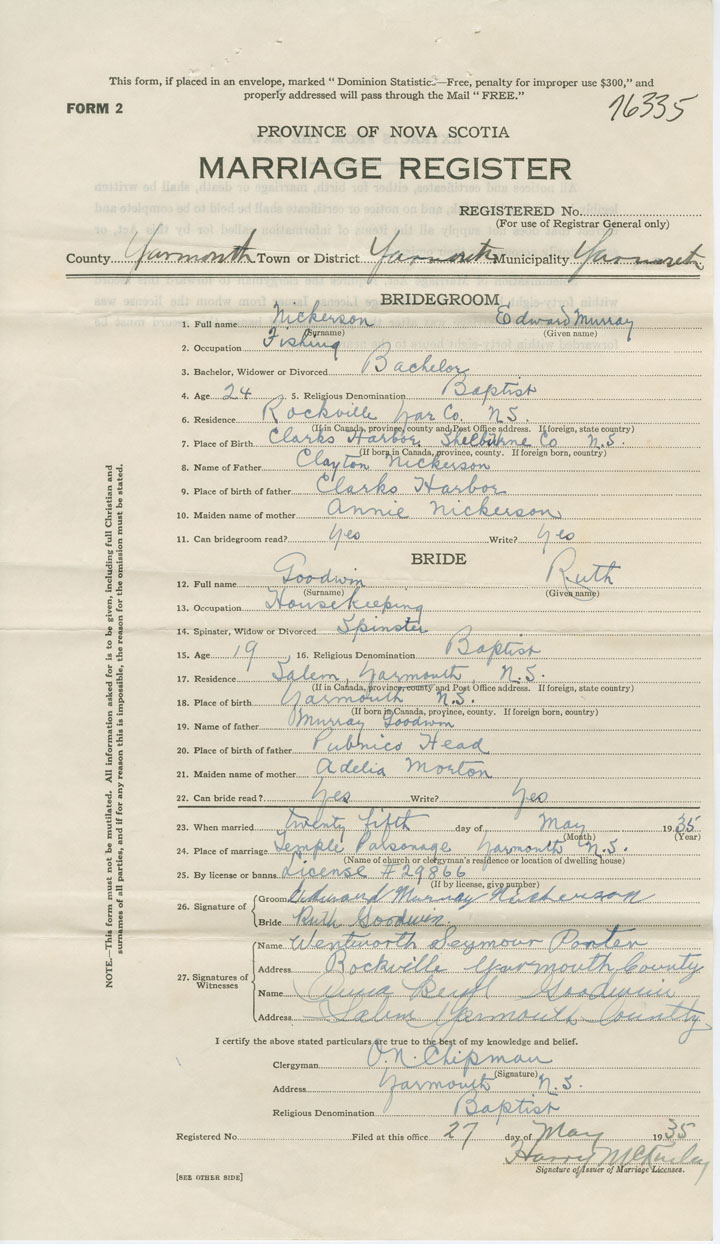 This form, if placed in an envelope, marked “ Dominion Statistic.—Free, penalty for improper use $300,” and
properly addressed will pass through the Mail “ FREE.”
FORM 2
16335
PROVINCE OF NOVA SCOTIA
MARRIAGE REGISTER
REGISTERED No.
(For use of Registrar General only)
County Yarmouth Town or District Yarmouth Municipality Yarmouth
BRIDEGROOM
1. Full name Nickerson Edward Murray
(Surname) (Given name)
2. Occupation Fishing
3. Bachelor, Widower or Divorced Bachelor
4. Age 24 5. Religious Denomination Baptist
6. Residence Rockville Yar Co. N.S.
(If in Canada, province, county and Post Office address. If foreign, state country)
7. Place of Birth Clarks Harbor, Shelburne Co N.S.
(If born in Canada, province, county. If foreign born, country)
8. Name of Father Clayton Nickerson
9. Place of birth of father Clarks Harbor
10. Maiden name of mother Annie Nickerson
11. Can bridegroom read? Yes Write? Yes
BRIDE
12. Full name Goodwin Ruth
(Surname) (Given name)
13. Occupation Housekeeping
14. Spinster, Widow or Divorced Spinster
15. Age 19 16. Religious Denomination Baptist
17. Residence Salem, Yarmouth, N.S.
(If in Canada, province, county and Post Office address. If foreign, state country)
18. Place of birth Yarmouth N.S.
(If born in Canada, province, county. If foreign born, country)
19. Name of father Murray Goodwin
20. Place of birth of father Pubnico Head
21. Maiden name of mother Adelia Morton
22. Can bride read? Yes Write? Yes
23. When married twenty fifth day of May 1935
(Month) (Year)
24. Place of marriage Temple Parsonage Yarmouth N.S.
(Name of church or clergyman's residence or location of dwelling house)
25. By license or banns License #29866
(If by license, give number)
26. Signature of Groom Edward Murray Nickerson
Bride Ruth Goodwin
27. Signatures of Witnesses
Name Wentworth Seymour Porter
Address Rockville Yarmouth County
Name Anna Beryl Goodwin
Address Salem Yarmouth County
I certify the above stated particulars are true to the best of my knowledge and belief.
Clergyman O.N. Chipman
(Signature)
Address Yarmouth N.S.
Religious Denomination Baptist
Registered No. Filed at this office 27 day of May 1935
Harry McKinlay
Signature of Issuer of Marriage Licenses.
[SEE OTHER SIDE]
NOTE.—This form must not be mutilated. All information asked for is to be given, including full Christian and
surnames of all parties, and if for any reason this is impossible, the reason for the omission must be stated.